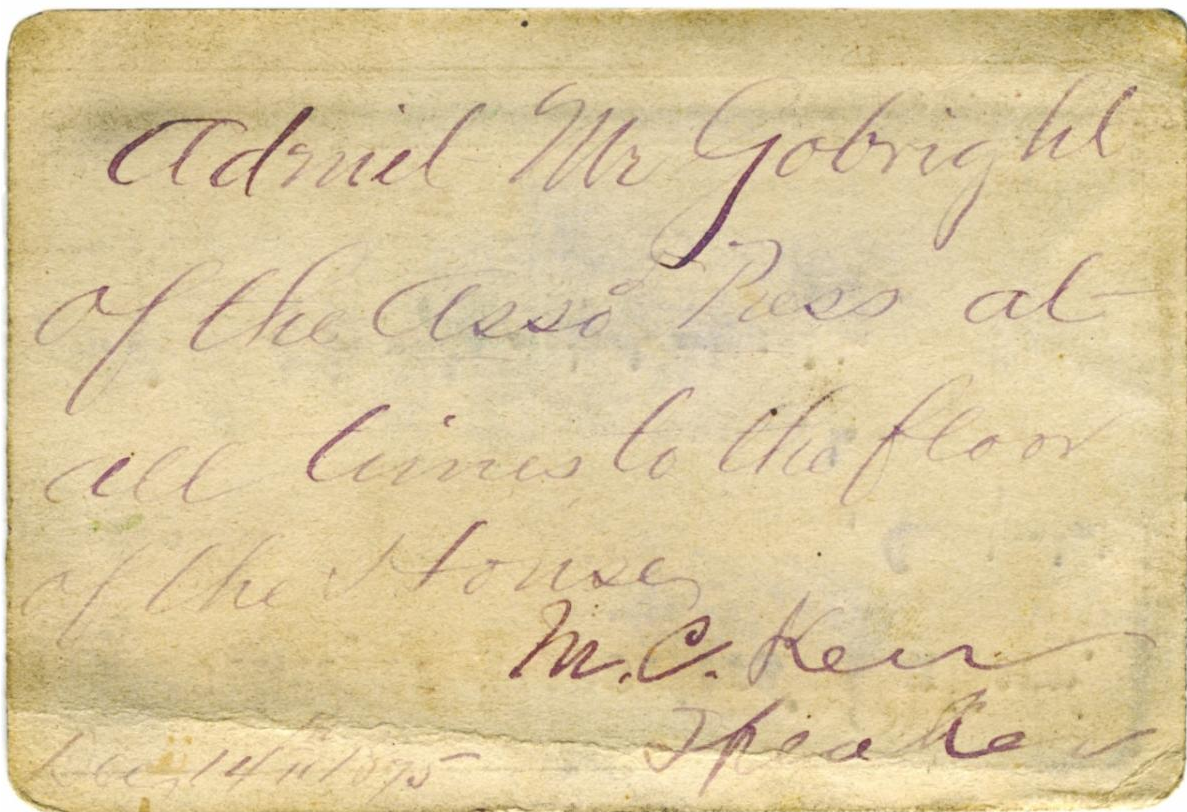 Admit Mr Gobright
of the Asso Press at
all times to the floor
of the House,
M. C. Kerr
Speaker
Dec, 14th 1875